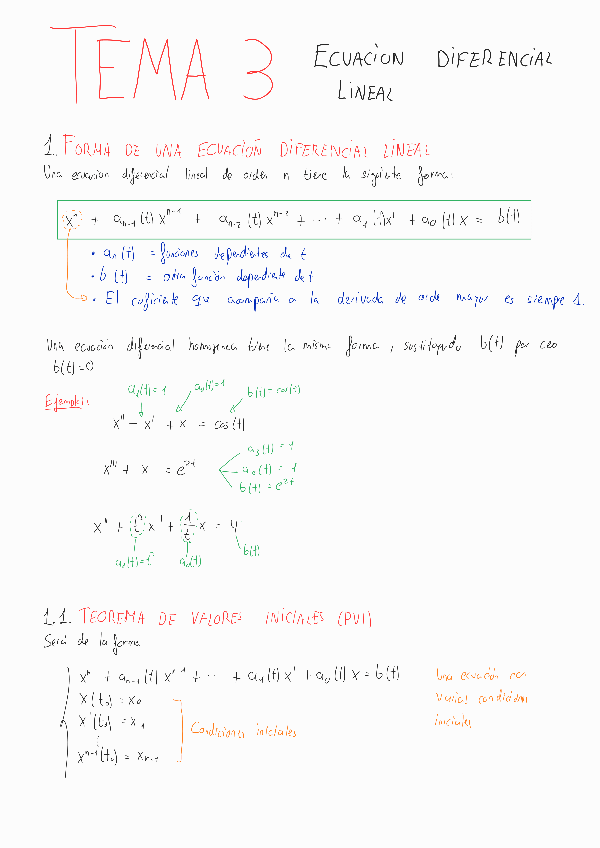 TEMA 3 ECUACION DIFERENCIAL
LINEAL
1. FORMA DE UNA ECUACION DIFERENCIAL LINEAL
Una ecuacion diferencial lineal de orden n tiene la siguiente forma:
xⁿ + aₙ₋₁(t) xⁿ⁻¹ + aₙ₋₂(t) xⁿ⁻² + ... + a₁(t)x' + a₀(t) x = b(t)
• aₙ(t) = funciones dependientes de t
• b(t) = otra función dependiente de t
• El coficiente que acompaña a la derivada de orde mayor es siempre 1.
Una ecuación difencial homogenea tiene la misma forma, sustituyendo b(t) por cero
b(t)=0
Ejemplo:
a₁(t)=1 a₀(t)=1 b(t)=cos(t)
x'' - x' + x = cos(t)
a₃(t) = 1
x''' + x = e²ᵗ a₀(t) = 1
b(t) = e²ᵗ
x'' + t² x' + 1/t x = 4
b(t)
1.1. TEOREMA DE VALORES INICIALES (PVI)
Será de la forma
xⁿ + aₙ₋₁(t) xⁿ⁻¹ + ... + a₁(t) x' + a₀(t) x = b(t) Una ecuación con
x(t₀) = x₀ varias condiciones
x'(t₀) = x₁ Condiciones iniciales iniciales
xⁿ⁻¹(t₀) = xₙ₋₁